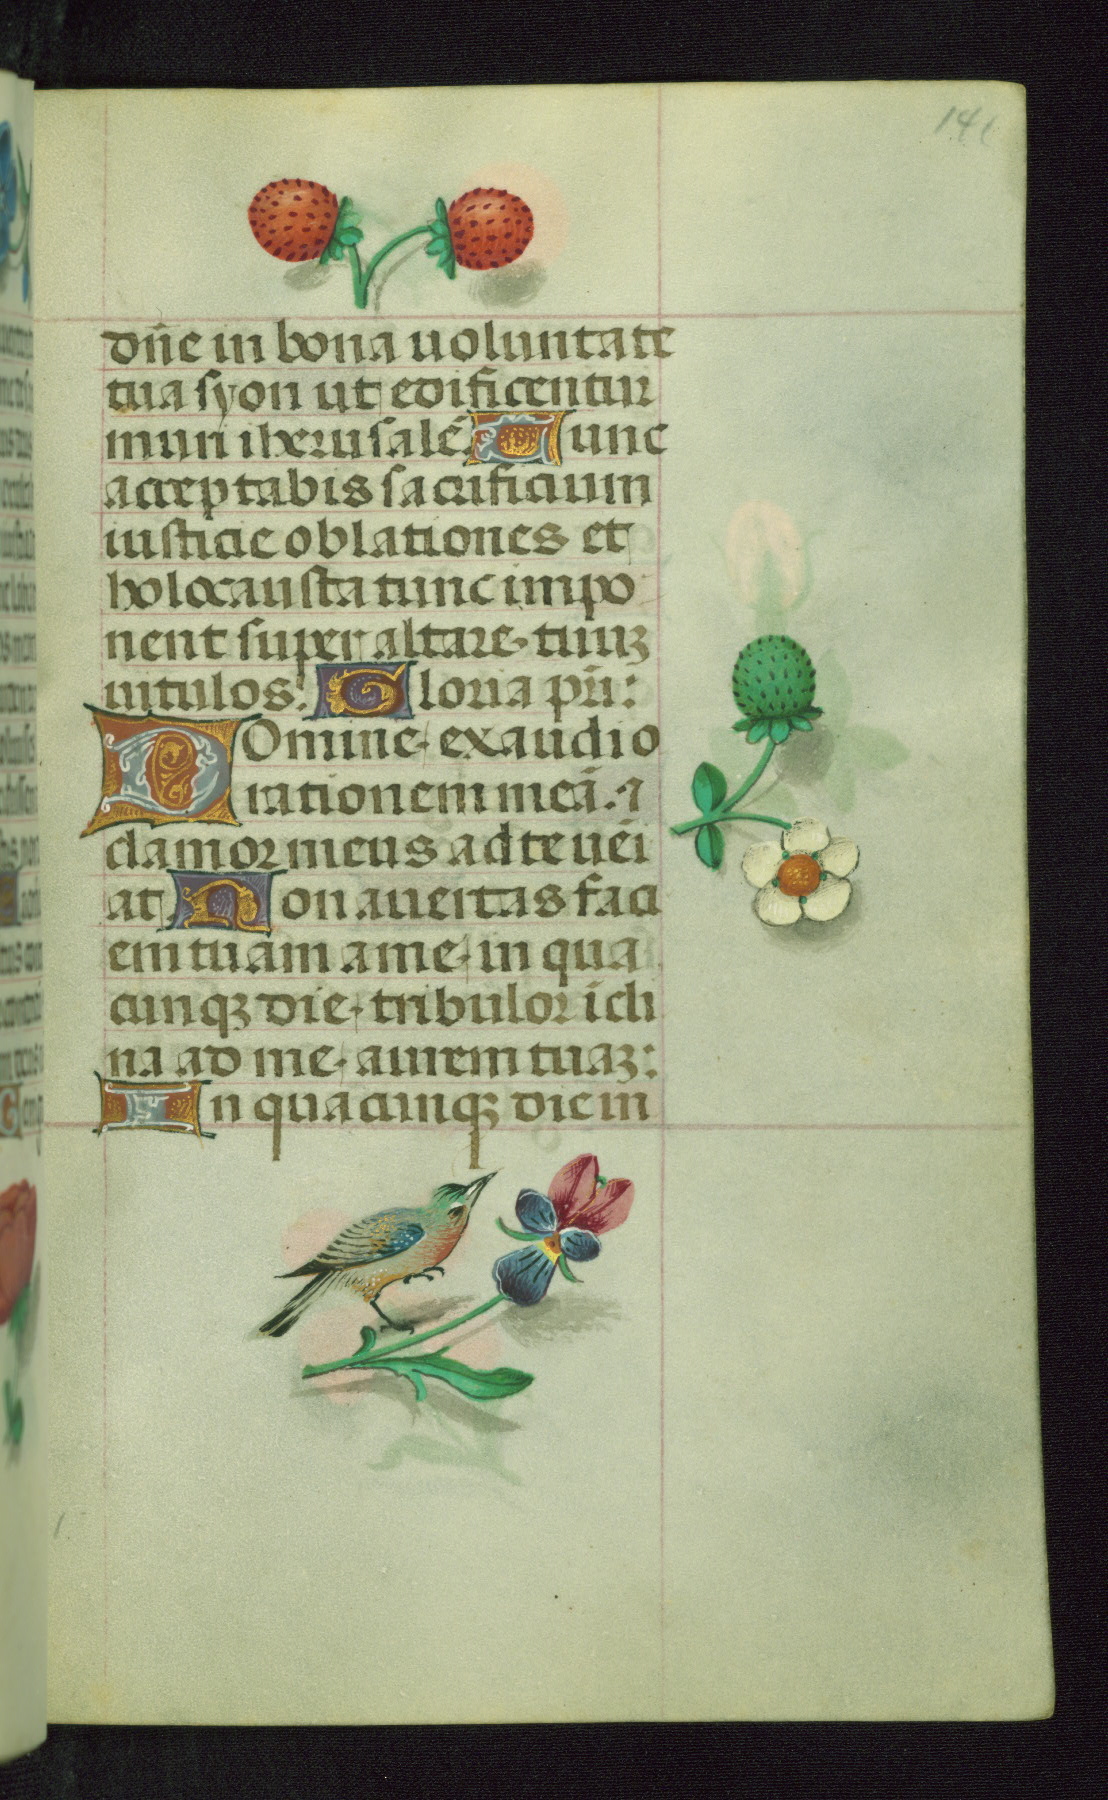 141
dñe in bona uoluntate
tua syon ut edificentur
muri iherusalē. Tunc
acceptabis sacrificium
iusticie oblationes et
holocausta tunc impo
nent super altare tuuꝫ
uitulos. Gloria pr̄i:
DOmine exaudi o
rationem meā. ⁊
clamor meus ad te uēi
at Non auertas faci
em tuam a me in qua
cunqꝫ die tribulor icli
na ad me aurem tuaꝫ:
In quacunqꝫ die in